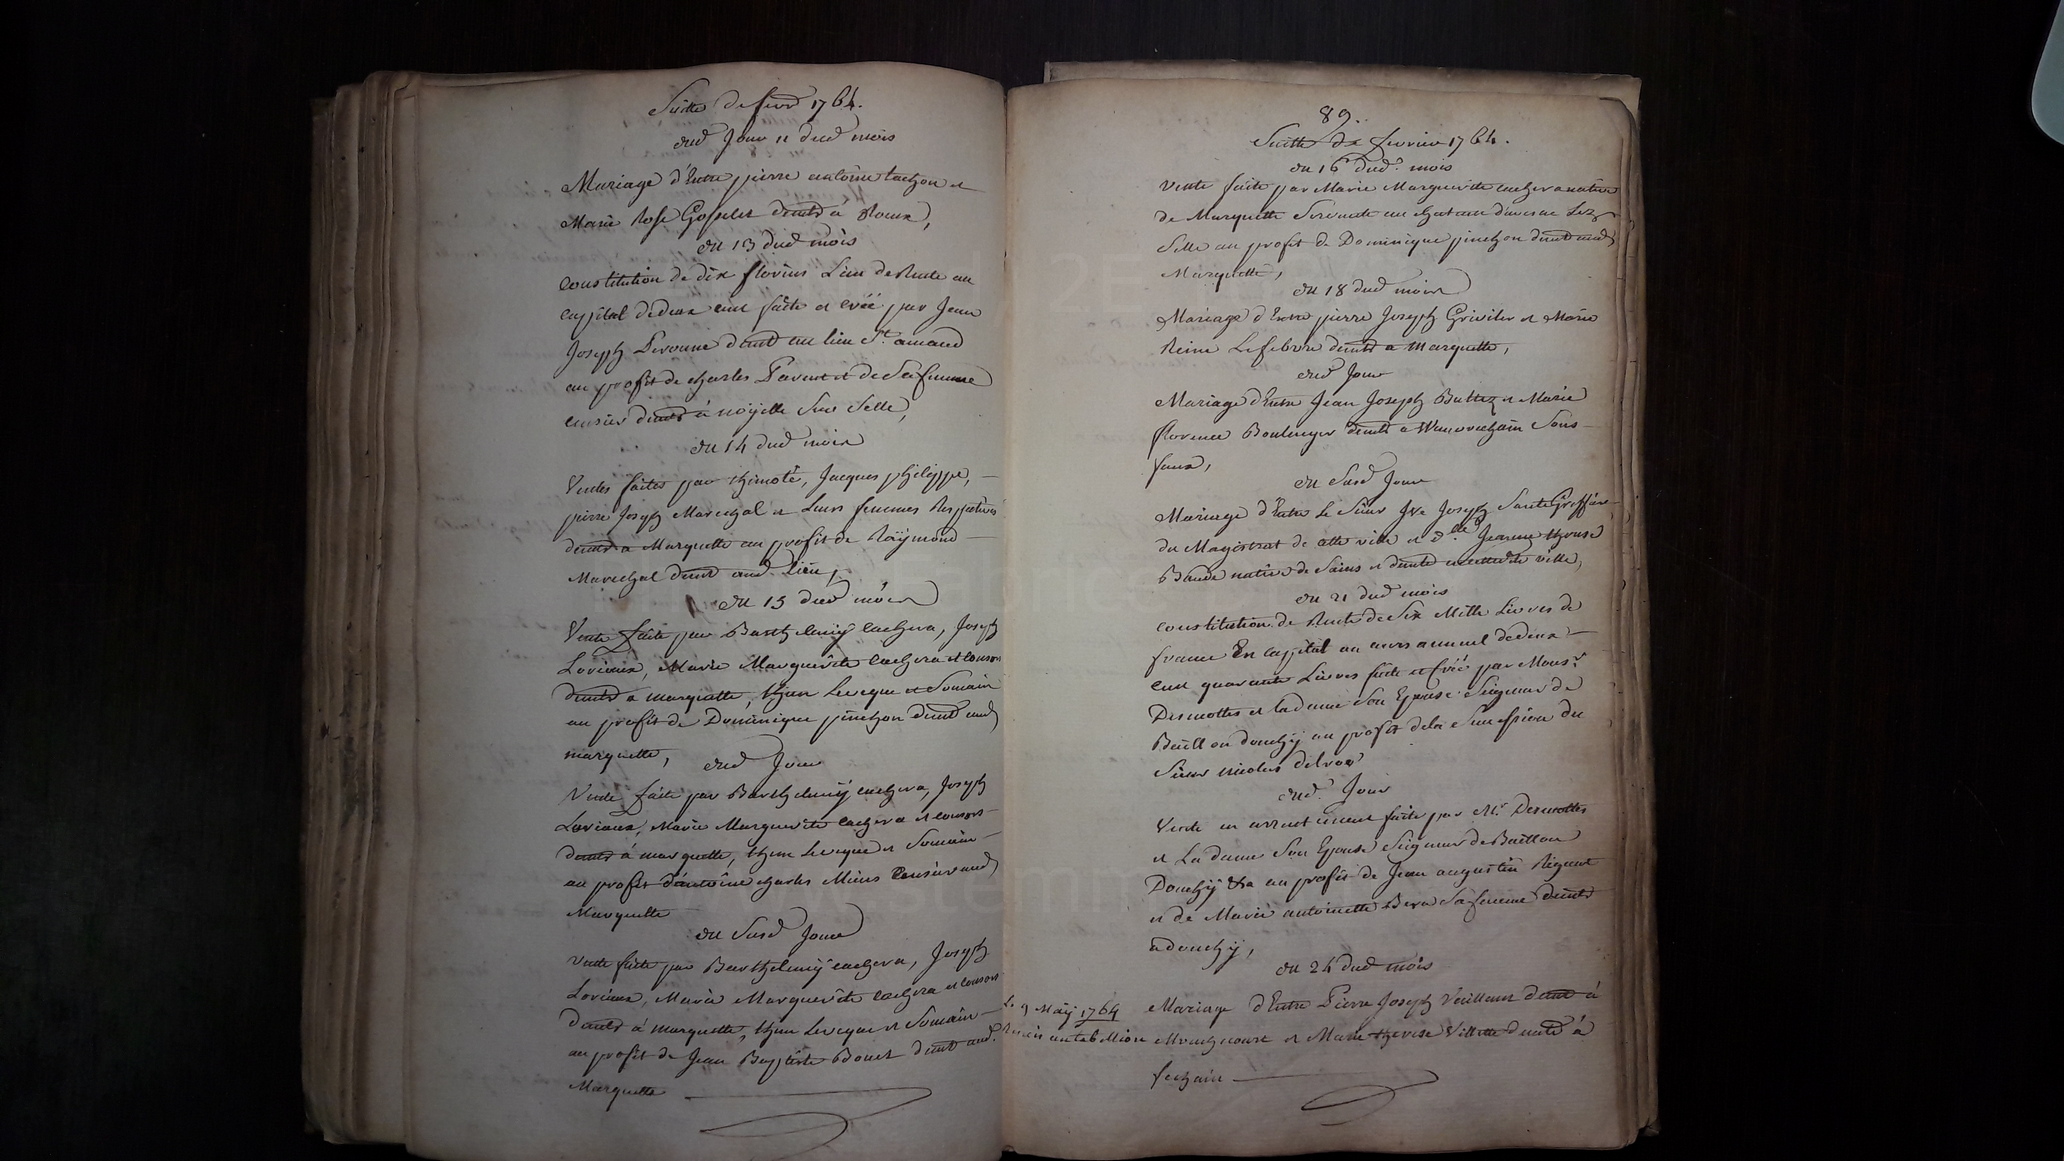 Suitte de fevr 1764.
dud Jour 11 dud mois
Mariage d'Entre pierre antoine tachon et
Marie Rose Gosselet demts à
du 13 dud mois
Constitution de dix florins Lieu de Rente au
Capital de deux cent faite et créé par Jean
Joseph demt au lieu St amand
au profit de charles Parent et de Sa femme
censier demts à noÿelle Sur Selle,
du 14 dud mois
Ventes faites par thimoté, Jacques philippe,
pierre Joseph Marechal et Leurs femmes Respectives
demts a Marquette au profit de Raÿmond
Marechal demt aud. lieu,
du 15 dud mois
Vente faite par Barthelemÿ cachera, Joseph
Lorieaux, Marie Marguerite Cachera et consors
demts a marquette, hem Lecque et Somain
au profit de Dominique pinchon demt aud
marquette,
dud Jour
Vente faite par Barthelemÿ cachera, Joseph
Lorieaux, Marie Marguerite Cachera et consors
demts à marquette, hem Lecque et Somain
au profit d'antoine charles Mines Censier aud
Marquette
du Susd Jour
Vente faite par Barthelemÿ cachera, Joseph
Lorieaux, Marie Marguerite Cachera et consors
demts à marquette, hem Lecque et Somain
au profit de Jean Baptiste Bouet demt aud.
Marquette
89.
Suitte de fevrier 1764.
du 16 dud. mois
Vente faite par Marie Marguerite cachera native
de Marquette Servante au chateau d'avesne Lez
Selle au profit de Dominique pinchon demt aud
Marquette,
du 18 dud mois
Mariage d'Entre pierre Joseph Griviler et Marie
Reine Lefebvre demts a Marquette,
dud Jour
Mariage d'Entre Jean Joseph Buttez et Marie
florence Boulenger demts a Wavrechain Sous
faux,
du Susd Jour
Mariage d'Entre Le Sieur Joseph Greffier
du Magistrat de cette ville et dlle Jeanne therese
Baude native de Sains et demte ville,
du 21 dud mois
Constitution de Rente de Six Mille Livres de
france En capital au cours annuel de deux
cent quarante Livres faite et Créé par Monsr
Desmottes et la dame Son Epouse Seigneur de
douchÿ au profit de la Succession du
Sieur nicolas delvoo
dud. Jour
Vente en arrentement faite par Mr. Desmottes
et La dame Son Epouse Seigneur de Baillon
Douchÿ &a au profit de Jean augustin Regent
et de Marie antoinette Bera Sa femme demts
a douchÿ,
du 24 dud mois
Le 9 Maÿ 1764
Mariage d'Entre Pierre Joseph Vaillant demt à
Monchecourt et Marie therese Villette demte à
fechain